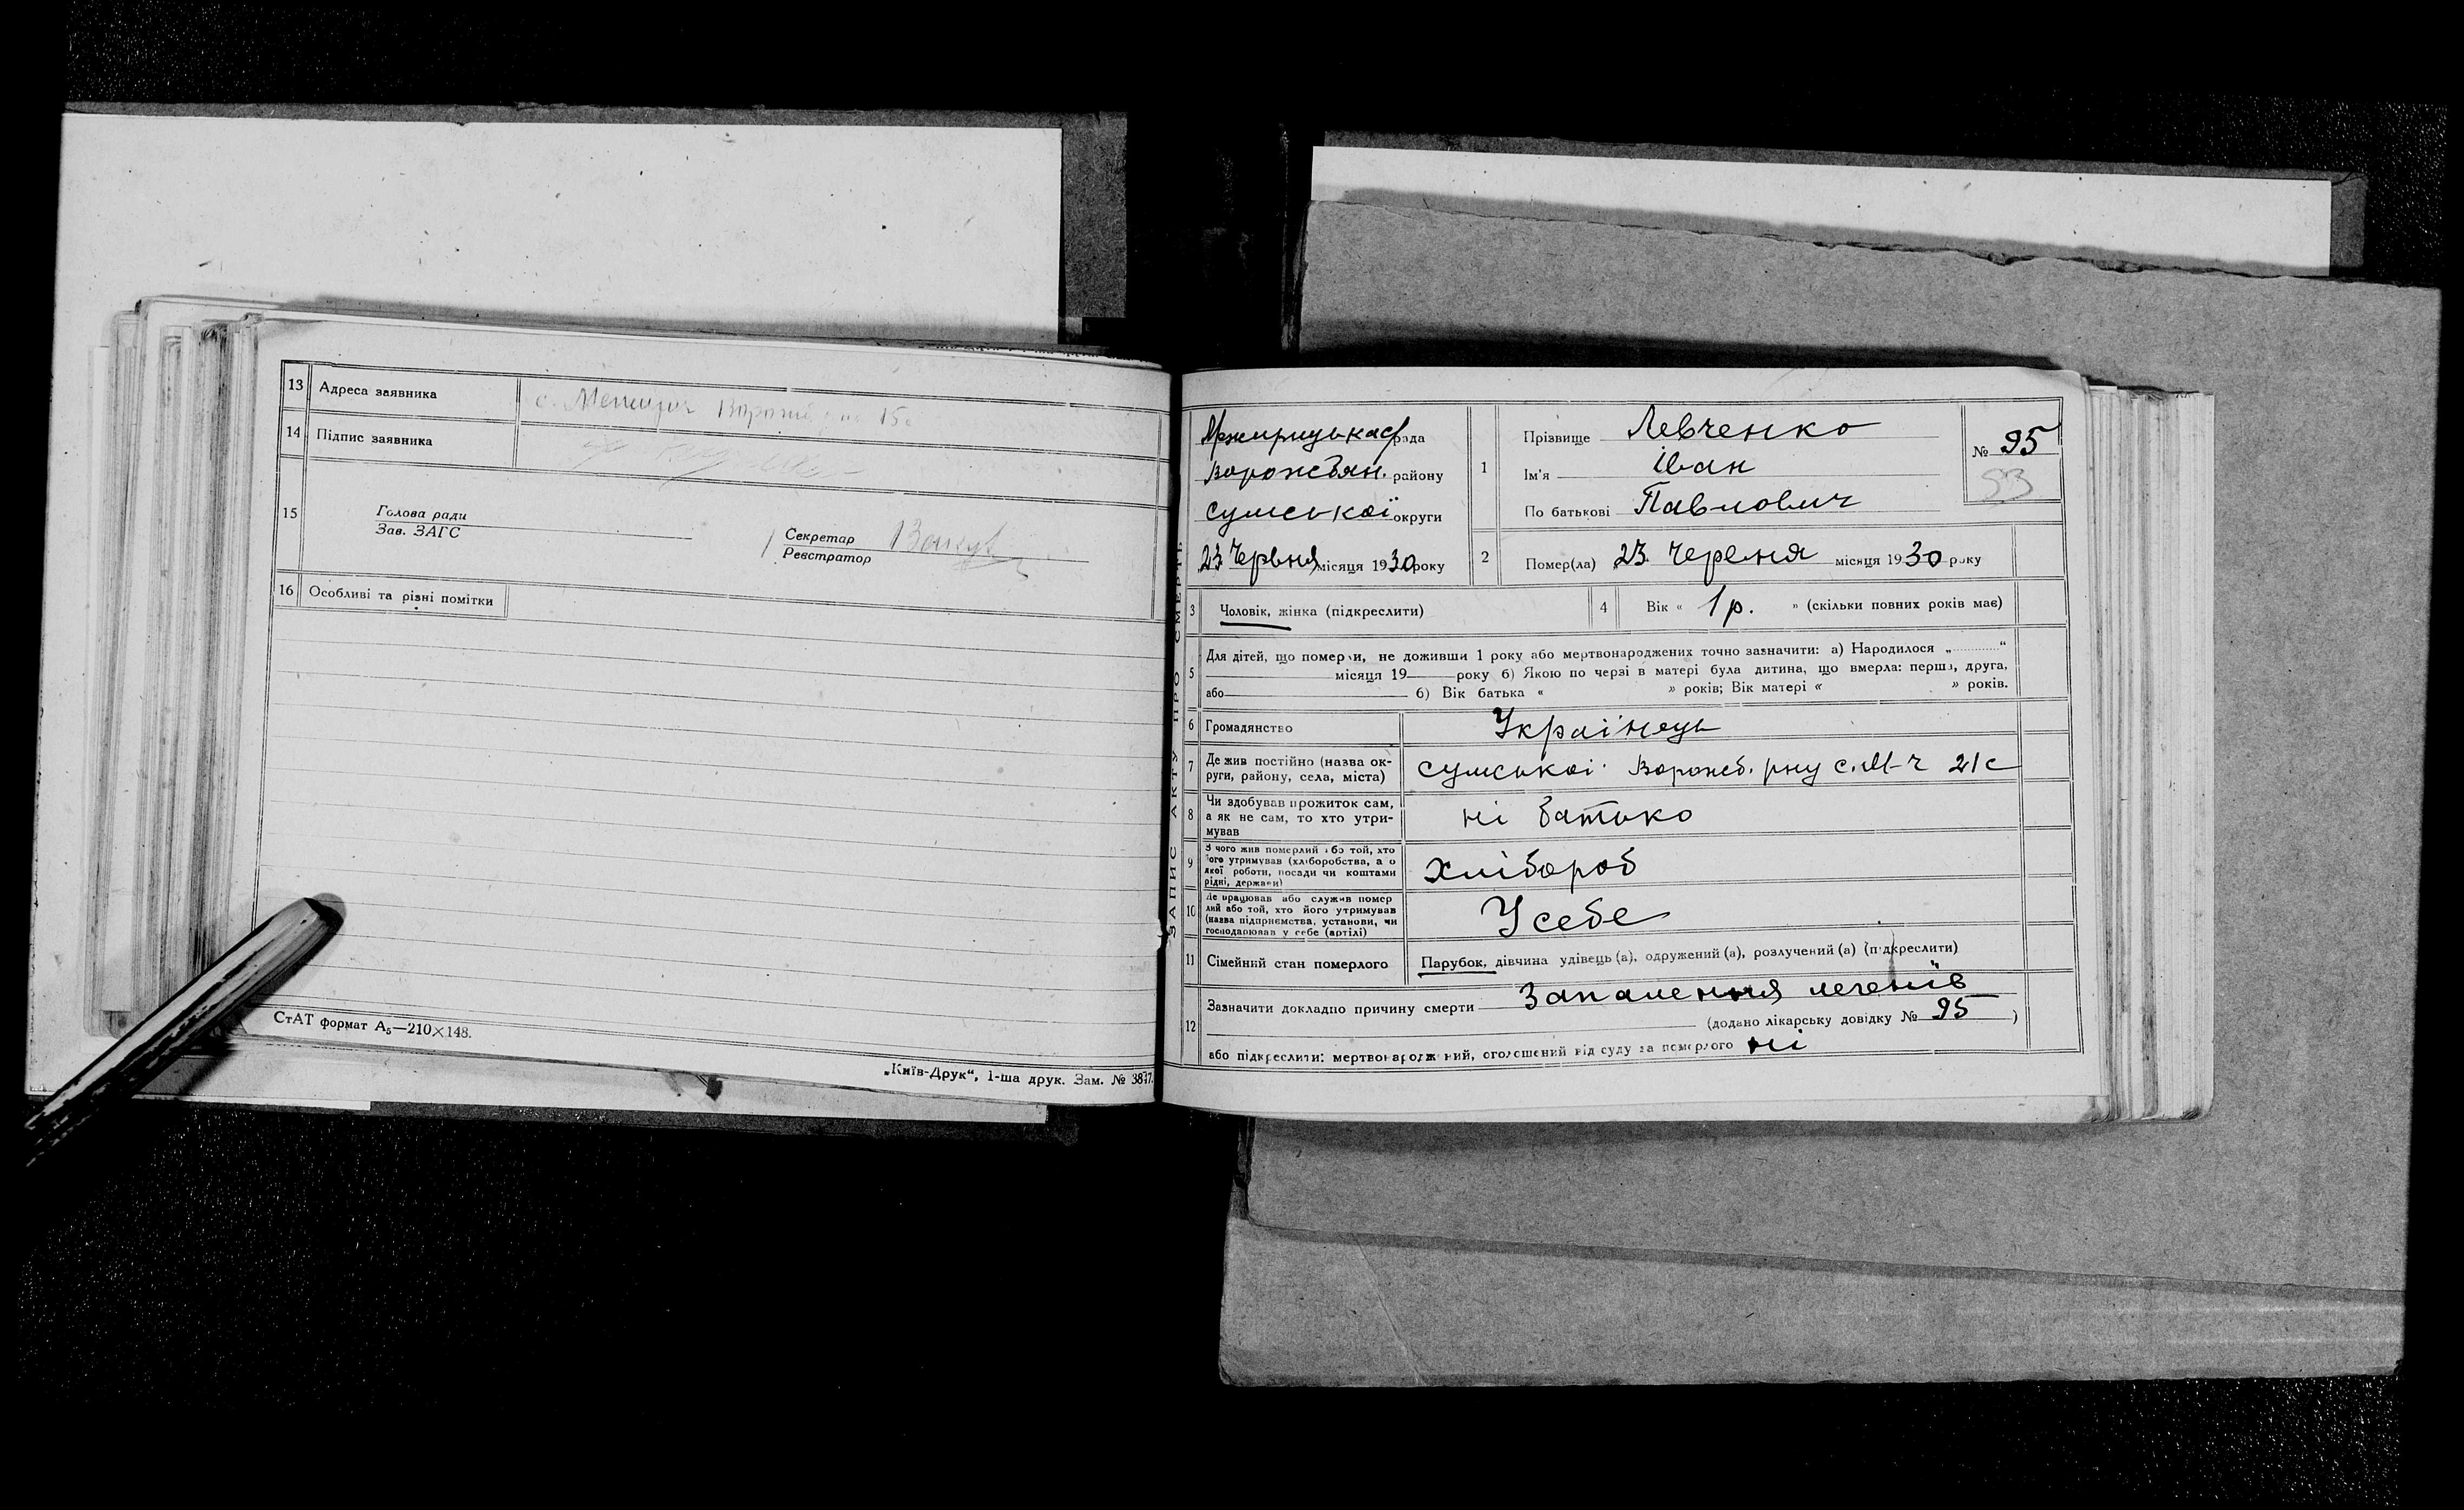 13 Адреса заявника с. Межирич
14 Підпис заявника
15 Голова ради
Зав. ЗАГС
Секретар
Реєстратор
16 Особливі та різні помітки
СтАТ формат А₅—210×148.
„Київ-Друк“, 1-ша друк. Зам. № 3877.
ЗАПИС АКТУ ПРО СМЕРТЬ
рада
Ворожбян. району
Сумської округи
23 Червня місяця 1930 року
1 Прізвище Левченко
Ім'я Іван
По батькові Павлович
№ 95
93
2 Помер(ла) 23 Червня місяця 1930 року
3 Чоловік, жінка (підкреслити)
4 Вік « 1 р. » (скільки повних років має)
5 Для дітей, що померли, не доживши 1 року або мертвонароджених точно зазначити: а) Народилося „ “
місяця 19 року б) Якою по черзі в матері була дитина, що вмерла: перша, друга,
або б) Вік батька « » років; Вік матері « » років.
6 Громадянство Українець
7 Де жив постійно (назва ок-
руги, району, села, міста) Сумської Ворожб. рну с. М-ч 21с
8 Чи здобував прожиток сам,
а як не сам, то хто утри-
мував ні батько
9 З чого жив померлий або той, хто
його утримував (хліборобства, а о
якої роботи, посади чи коштами
рідні, держави) Хлібороб
10 Де працював або служив помер
лий або той, хто його утримував
(назва підприємства, установи, чи
господарював у себе (артілі) У себе
11 Сімейний стан померлого Парубок, дівчина удівець (а), одружений (а), розлучений (а) (підкреслити)
12 Зазначити докладно причину смерти Запалення легенів
(додано лікарську довідку № 95 )
або підкреслити: мертвонароджений, оголошений від суду за померлого ні